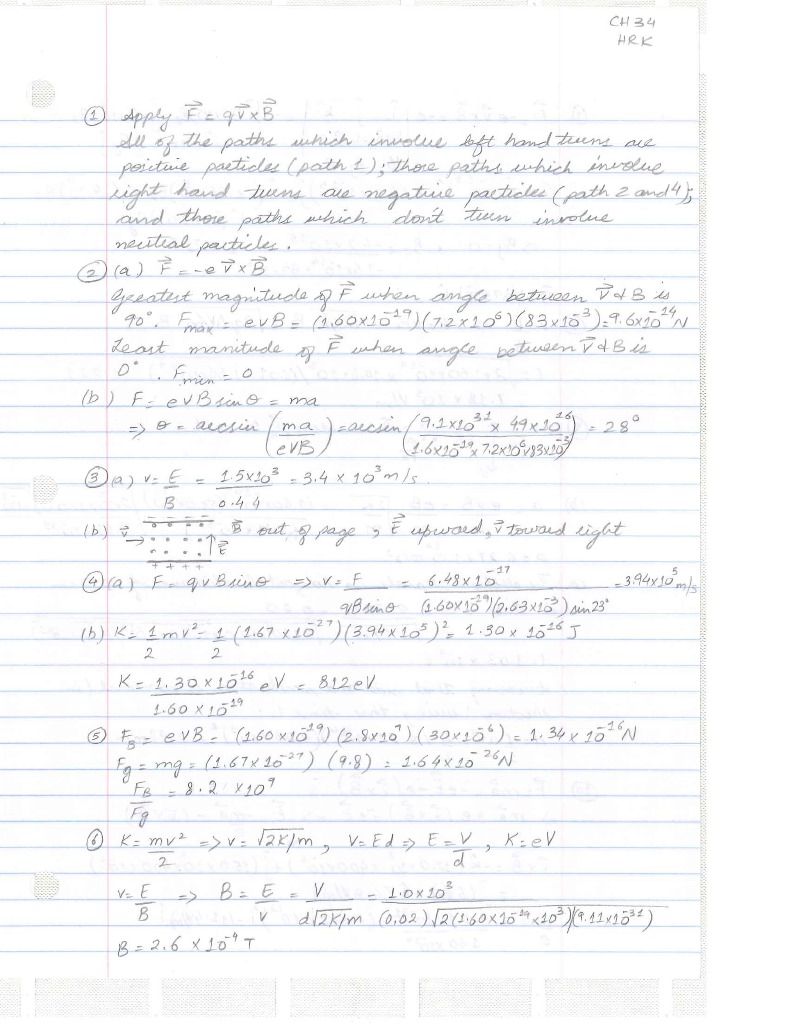 CH 34
HRK
① Apply F⃗ = qv⃗ x B⃗
All of the paths which involve left hand turns are
positive particles (path 1); those paths which involve
right hand turns are negative particles (path 2 and 4);
and those paths which don't turn involve
neutral particles.
② (a) F⃗ = -e v⃗ x B⃗
Greatest magnitude of F⃗ when angle between v⃗ & B is
90°. Fmax = evB = (1.60x10⁻¹⁹)(7.2x10⁶)(83x10⁻³) = 9.6x10⁻¹⁴N
Least manitude of F⃗ when angle between v⃗ & B is
0°. Fmin = 0
(b) F = evBsinθ = ma
=> θ = arcsin (ma/evB) = arcsin (9.1x10³¹ x 4.9x10¹⁶/1.6x10⁻¹⁹x7.2x10⁶x83x10⁻³) = 28°
③ (a) v = E/B = 1.5x10³/0.44 = 3.4 x 10³ m/s.
(b) v⃗ - - - - + + + + E⃗ B⃗ out of page, E⃗ upward, v⃗ toward right
④ (a) F = qvBsinθ => v = F/qBsinθ = 6.48x10⁻¹⁷/(1.60x10⁻¹⁹)(2.63x10⁻³)sin23° = 3.94x10⁵ m/s
(b) K = 1/2 mv² = 1/2 (1.67 x10⁻²⁷)(3.94x10⁵)² = 1.30 x 10⁻¹⁶ J
K = 1.30 x10⁻¹⁶/1.60 x10⁻¹⁹ eV = 812 eV
⑤ F_B = evB = (1.60x10⁻¹⁹)(2.8x10⁷)(30x10⁻⁶) = 1.34 x 10⁻¹⁶N
Fg = mg = (1.67x10⁻²⁷)(9.8) = 1.64x10⁻²⁶N
F_B/Fg = 8.2 x10⁹
⑥ K = mv²/2 => v = √2K/m, V = Ed => E = V/d, K = eV
v = E/B => B = E/v = V/d√2K/m = 1.0x10³/(0.02)√2(1.60x10⁻¹⁹x10³)(9.11x10⁻³¹)
B = 2.6 x 10⁻⁴ T